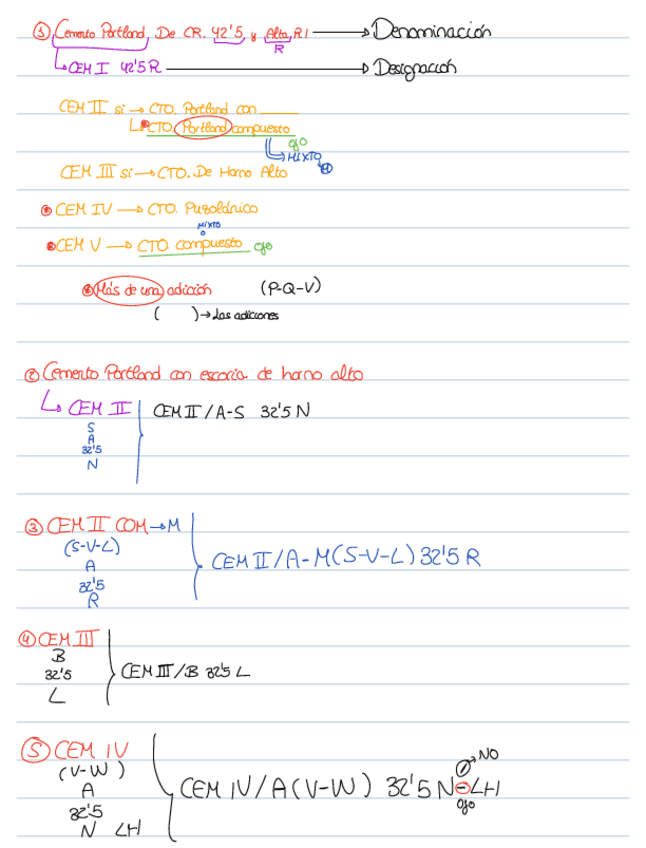 ① Cemento Portland, De CR. 42'5, y Alta, RI → Denominación
R
↳ CEM I 42'5 R → Designación
CEM II si → CTO. Portland con ______
↳ CTO. Portland compuesto
ojo
↳ MIXTO
CEM III si → CTO. De Horno Alto
CEM IV → CTO. Puzolánico
MIXTO
CEM V → CTO. compuesto ojo
Más de una adición (P-Q-V)
( ) → Las adiciones
② Cemento Portland con escoria de horno alto
↳ CEM II CEM II/A-S 32'5 N
S
A
32'5
N
③ CEM II COM → M
(S-V-L) CEM II/A-M(S-V-L) 32'5 R
A
32'5
R
④ CEM III
B
32'5 CEM III/B 32'5 L
L
⑤ CEM IV → NO
(V-W)
A CEM IV/A (V-W) 32'5 N-LH
32'5 ojo
N LH